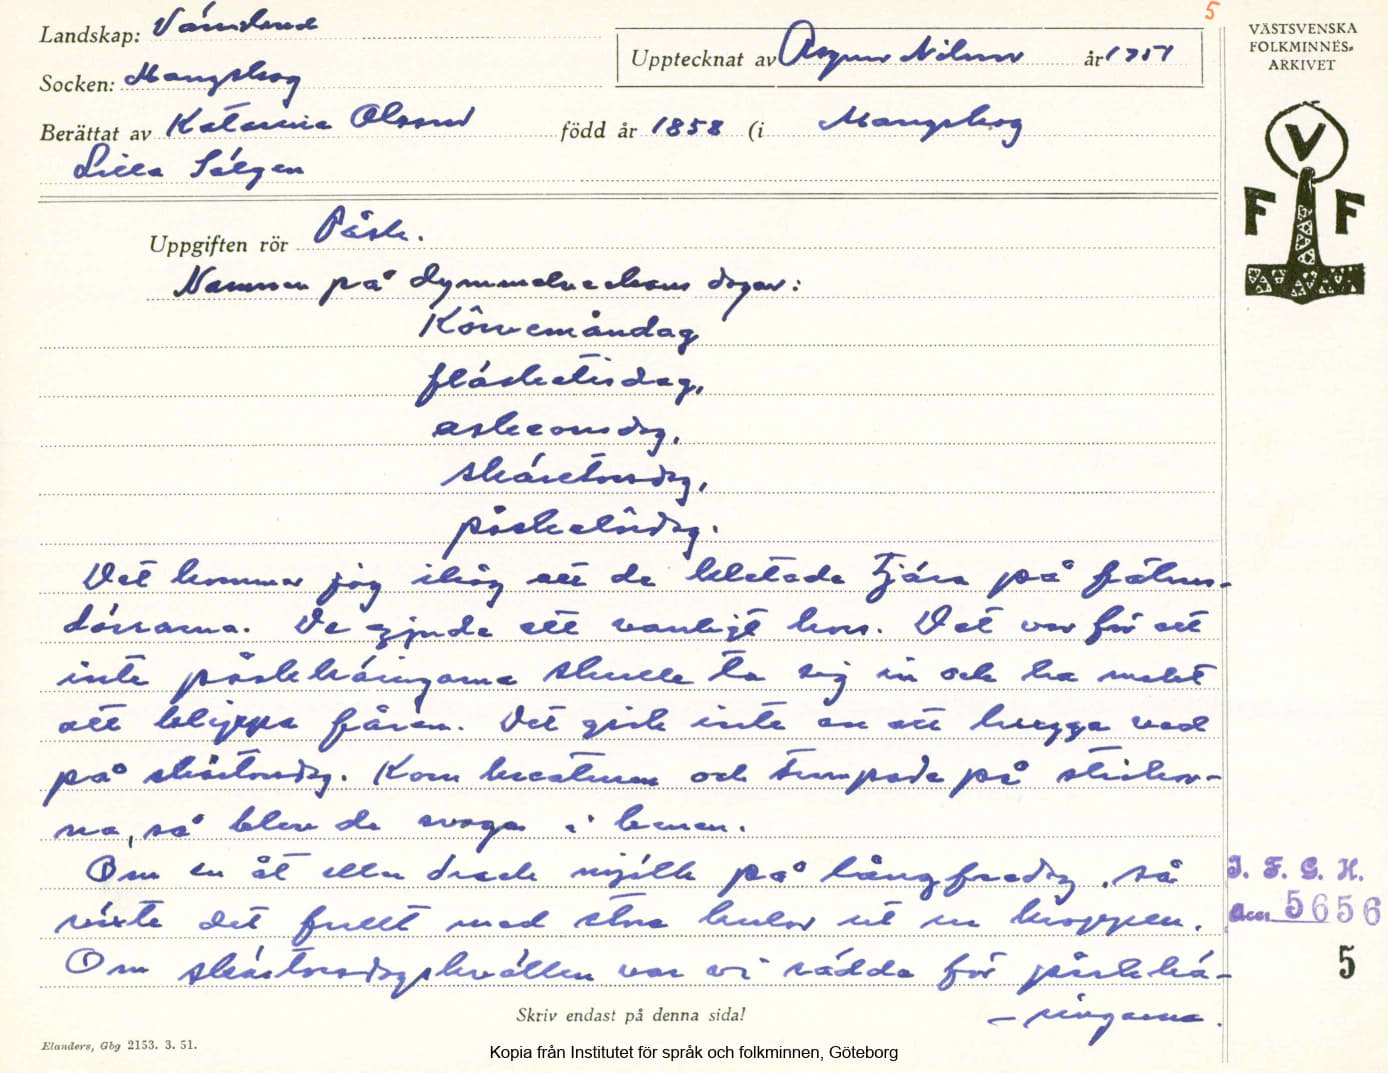 5
Landskap: Värmland
Upptecknat av Ragnar Nilsson år 1951
VÄSTSVENSKA
FOLKMINNES-
ARKIVET
Socken: Mangskog
Berättat av Katarina Olsson född år 1858 (i Mangskog
Lilla Sälgen
V
F F
Uppgiften rör Påsk.
Namnen på dymmelveckans dagar:
Kôrvemåndag
fläsketisdag,
askeonsdag,
skäretorsdag,
påskelördag.
Det kommer jag ihåg att de kletade tjära på fähus-
dörrarna. De gjorde ett vanligt kors. Det var för att
inte påskkäringarna skulle ta sig in och ha makt
att klippa fåren. Det gick inte an att hugga ved
på skärtorsdag. Kom kreaturen och trampade på stickor-
na, så blev de svaga i benen.
Om en åt eller drack mjölk på långfredag, så
växte det fullt med stora bulor ut en kroppen.
Om skärtorsdagskvällen var vi rädda för påskkä-
-ringarna.
I. F. G. H.
Acc. 5656
5
Skriv endast på denna sida!
Elanders, Gbg 2153. 3. 51.
Kopia från Institutet för språk och folkminnen, Göteborg